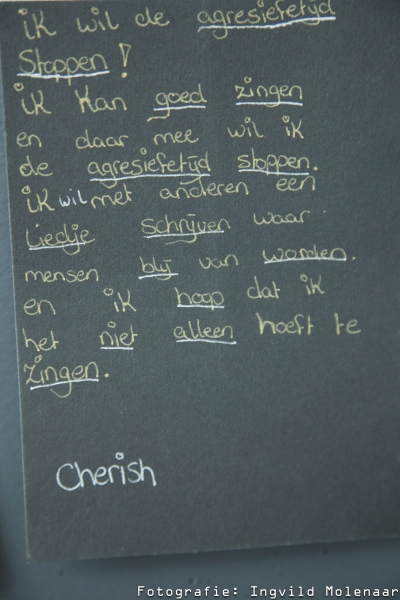 ik wil de agresiefetijd
stoppen!
ik kan goed zingen
en daar mee wil ik
de agresiefetijd stoppen.
ik wil met anderen een
liedje schrijven waar
mensen blij van worden.
en ik hoop dat ik
het niet alleen hoeft te
zingen.
Cherish
Fotografie: Ingvild Molenaar